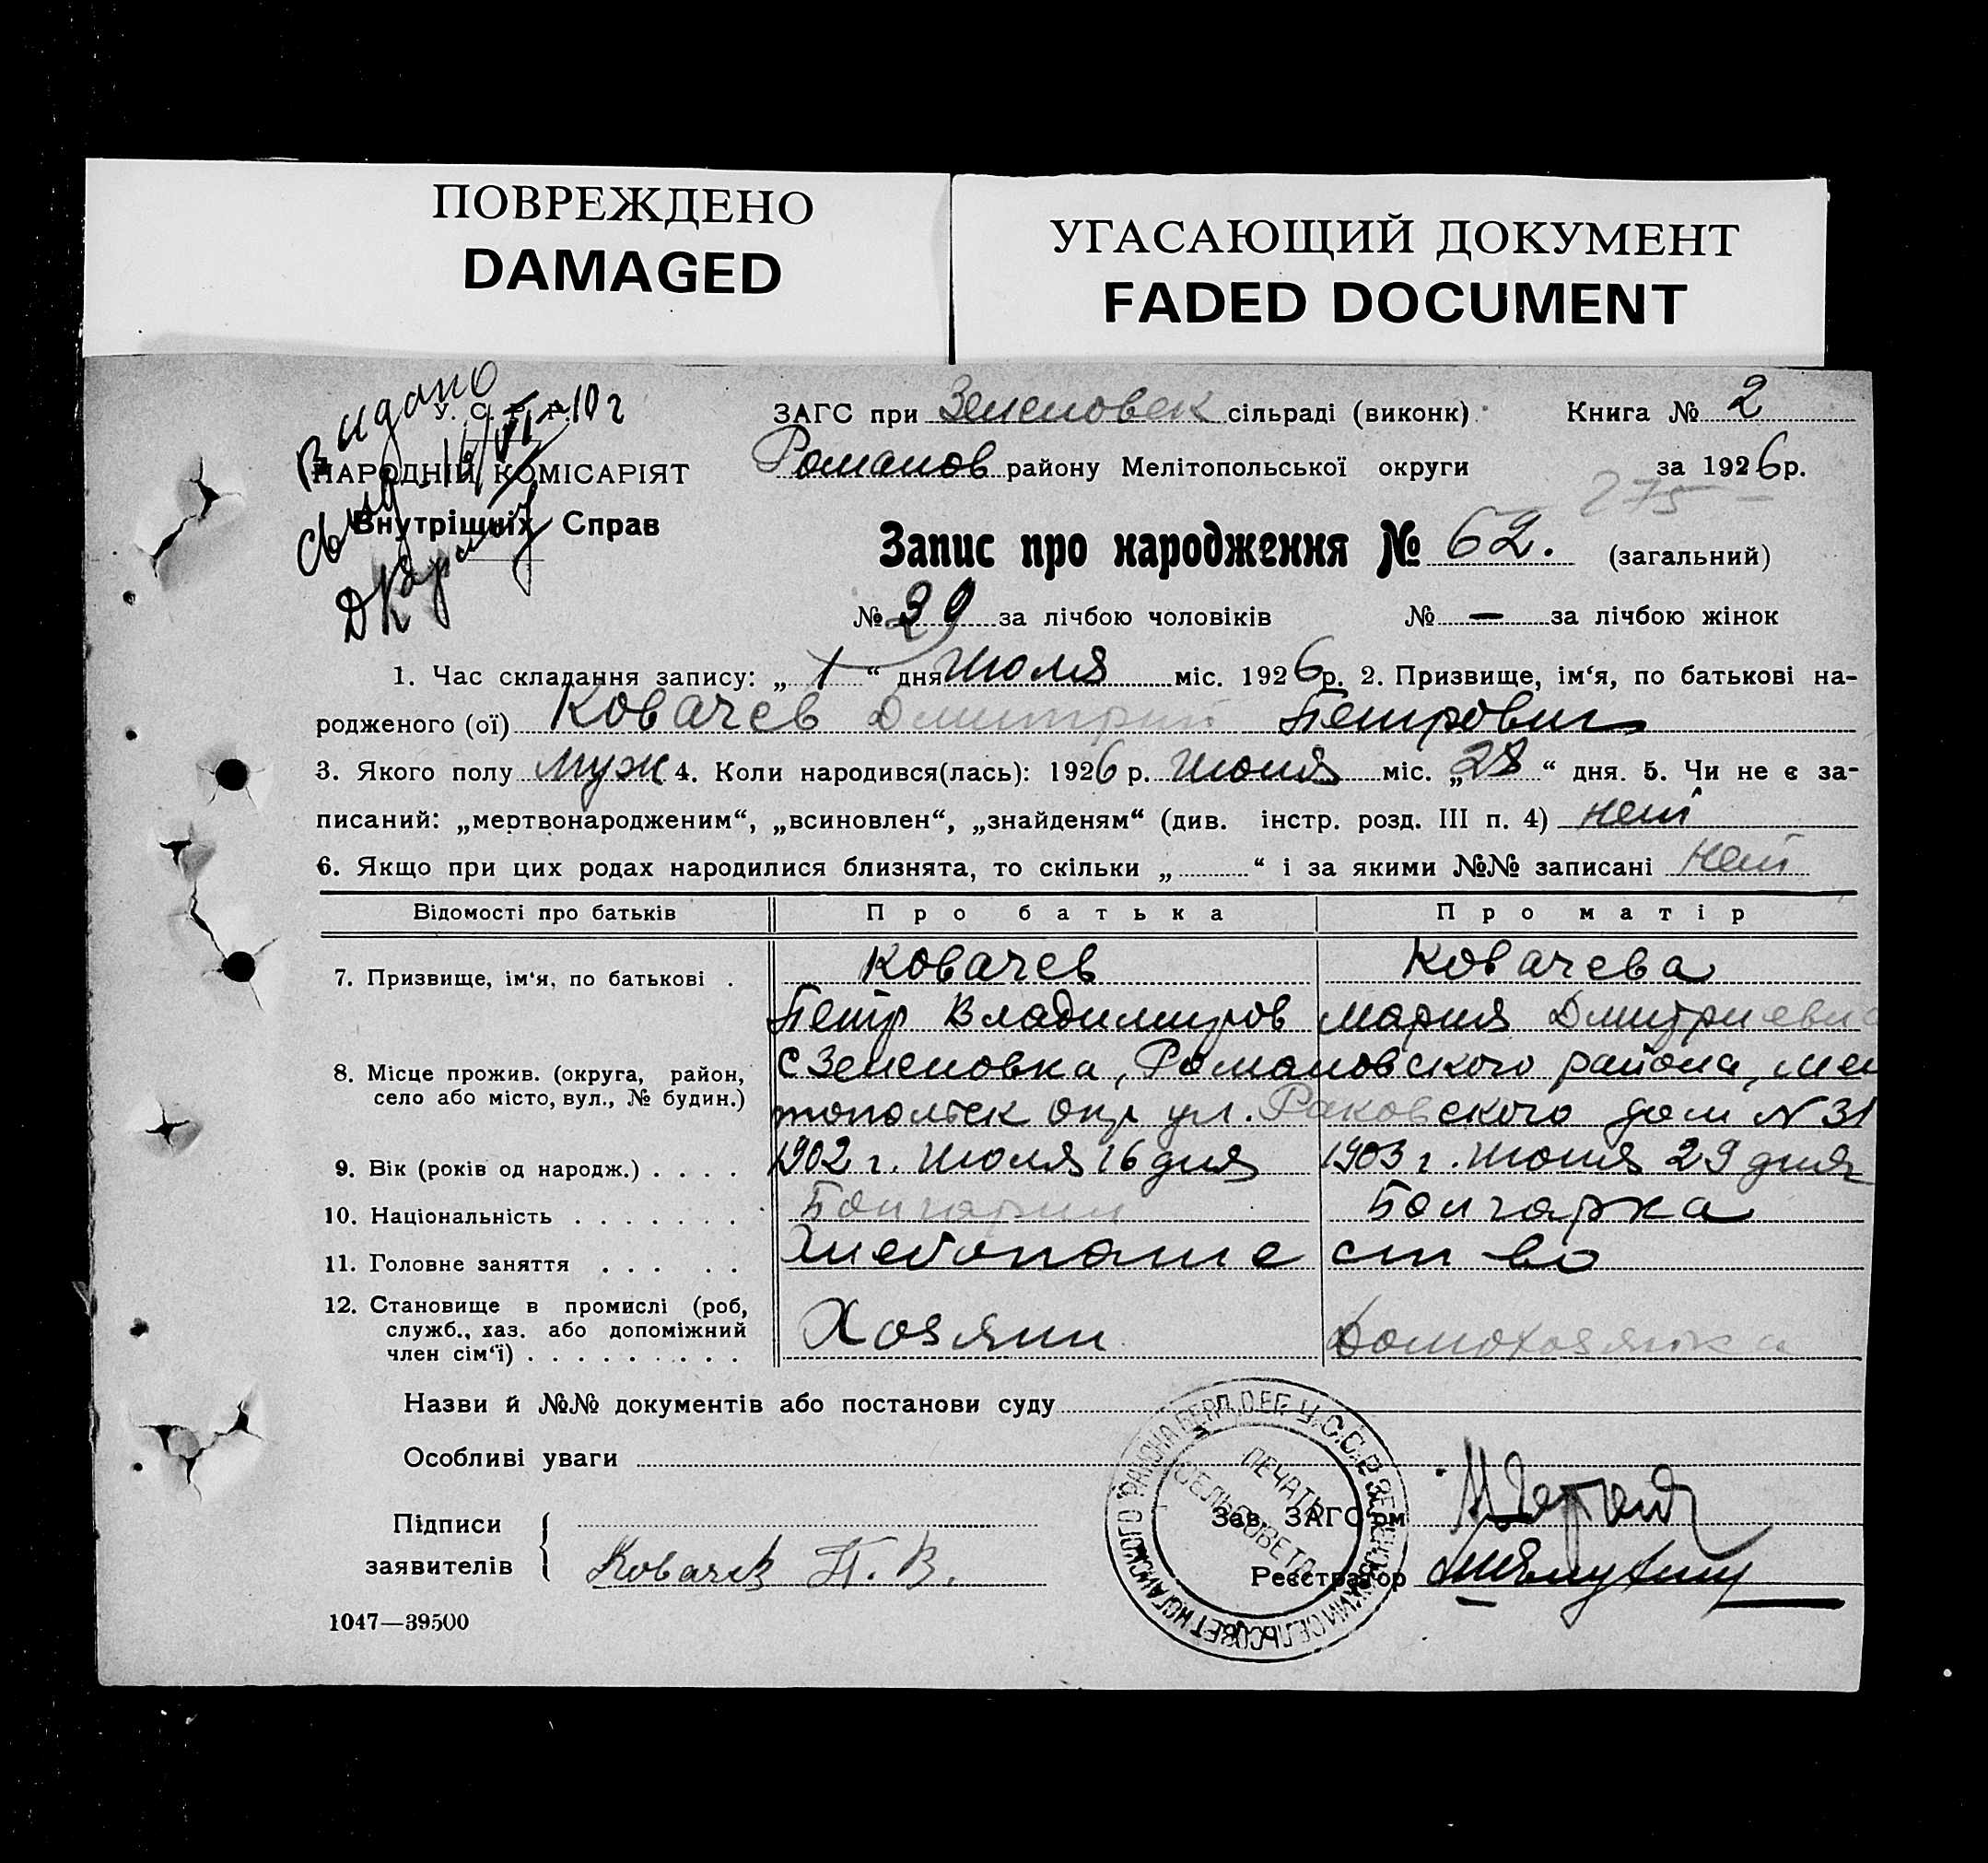 ПОВРЕЖДЕНО
DAMAGED
УГАСАЮЩИЙ ДОКУМЕНТ
FADED DOCUMENT
Видано
У. С. Р. Р.
НАРОДНІЙ КОМІСАРІЯТ
Внутрішніх Справ
ЗАГС при Зеленовск сільраді (виконк)
Книга № 2
Романов району Мелітопольської округи
за 1926 р.
275
Запис про народження № 62. (загальний)
№ 39 за лічбою чоловіків № — за лічбою жінок
1. Час складання запису: „ 1 “ дня Июля міс. 1926 р. 2. Призвище, ім‘я, по батькові на-
родженого (ої) Ковачев Дмитрий Петрович
3. Якого полу муж 4. Коли народився(лась): 1926 р. Июня міс. „ 28 “ дня. 5. Чи не є за-
писаний: „мертвонародженим“, „всиновлен“, „знайденям“ (див. інстр. розд. III п. 4) нет
6. Якщо при цих родах народилися близнята, то скільки „ “ і за якими №№ записані нет
Відомості про батьків Про батька Про матір
7. Призвище, ім‘я, по батькові . Ковачев Ковачева
Петр Владимиров Мария Дмитриевна
8. Місце прожив. (округа, район, село або місто, вул., № будин.) с Зеленовка, Романовского района, Мели
топольск окр ул. Раковского дом N 31
9. Вік (років од народж.) . . . . 1902 г. Июля 16 дня 1903 г. Июня 29 дня
10. Національність . . . . . . . Болгарин Болгарка
11. Головне заняття . . . . . Хлебопашество
12. Становище в промислі (роб, служб., хаз. або допоміжний член сім‘ї) . . . . . . . . . Хозяин Домохозяйка
Назви й №№ документів або постанови суду
Особливі уваги
Підписи
заявителів
Ковачев П. В.
Зав. ЗАГС‘ом
Реєстратор
ПЕЧАТЬ
СЕЛЬСОВЕТА
1047—39500